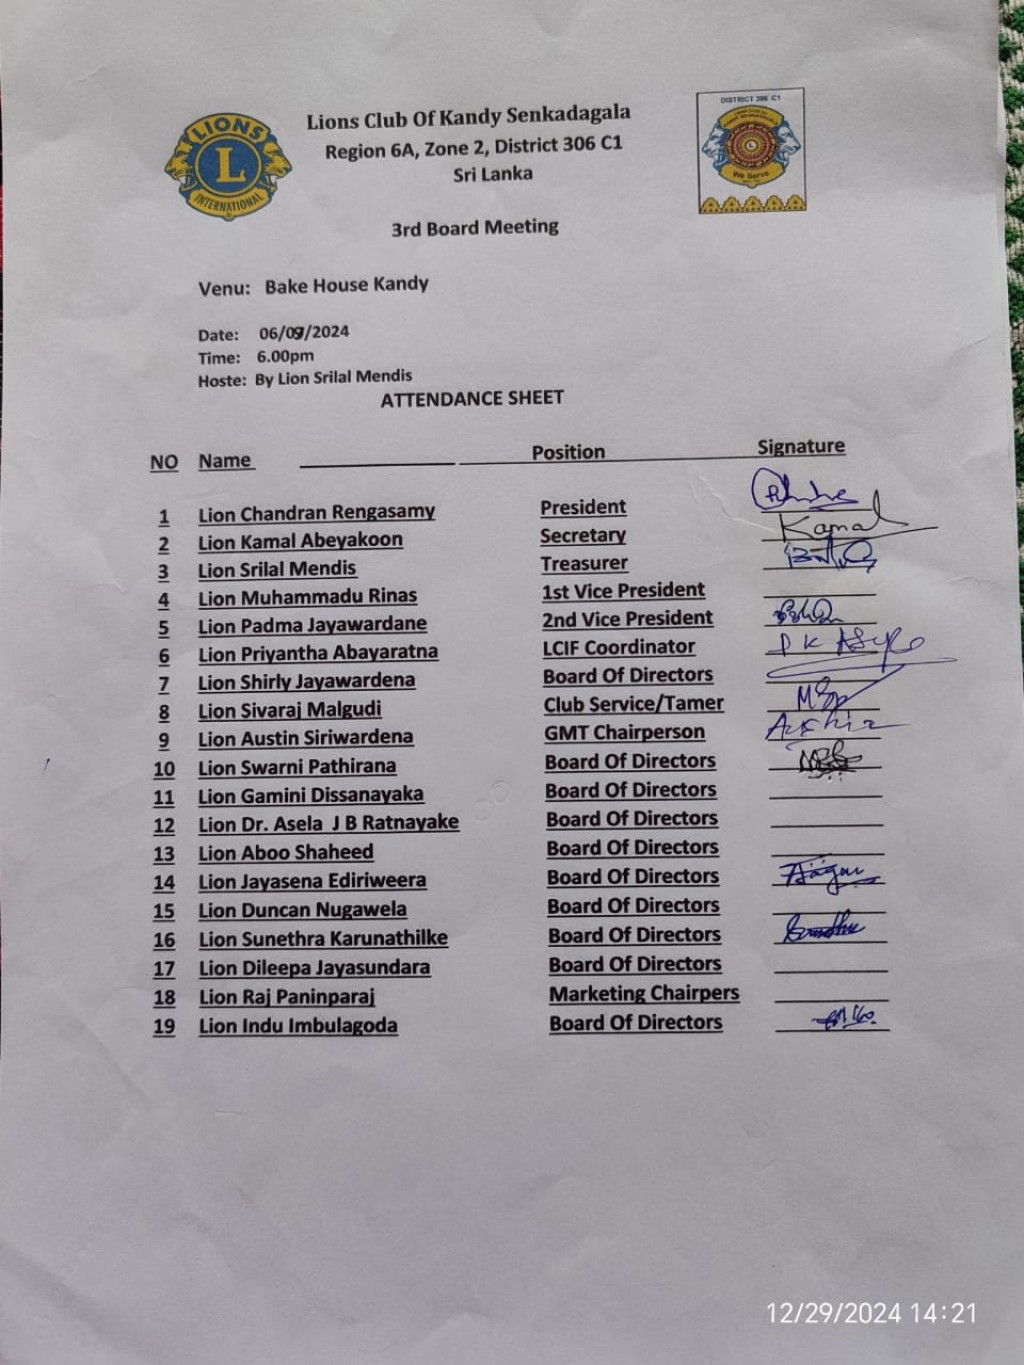 LIONS
L
INTERNATIONAL
Lions Club Of Kandy Senkadagala
Region 6A, Zone 2, District 306 C1
Sri Lanka
DISTRICT 306 C1
We Serve
3rd Board Meeting
Venu: Bake House Kandy
Date: 06/09/2024
Time: 6.00pm
Hoste: By Lion Srilal Mendis
ATTENDANCE SHEET
NO Name Position Signature
1 Lion Chandran Rengasamy President
2 Lion Kamal Abeyakoon Secretary Kamal
3 Lion Srilal Mendis Treasurer
4 Lion Muhammadu Rinas 1st Vice President
5 Lion Padma Jayawardane 2nd Vice President
6 Lion Priyantha Abayaratna LCIF Coordinator
7 Lion Shirly Jayawardena Board Of Directors
8 Lion Sivaraj Malgudi Club Service/Tamer
9 Lion Austin Siriwardena GMT Chairperson
10 Lion Swarni Pathirana Board Of Directors
11 Lion Gamini Dissanayaka Board Of Directors
12 Lion Dr. Asela J B Ratnayake Board Of Directors
13 Lion Aboo Shaheed Board Of Directors
14 Lion Jayasena Ediriweera Board Of Directors
15 Lion Duncan Nugawela Board Of Directors
16 Lion Sunethra Karunathilke Board Of Directors
17 Lion Dileepa Jayasundara Board Of Directors
18 Lion Raj Paninparaj Marketing Chairpers
19 Lion Indu Imbulagoda Board Of Directors
12/29/2024 14:21